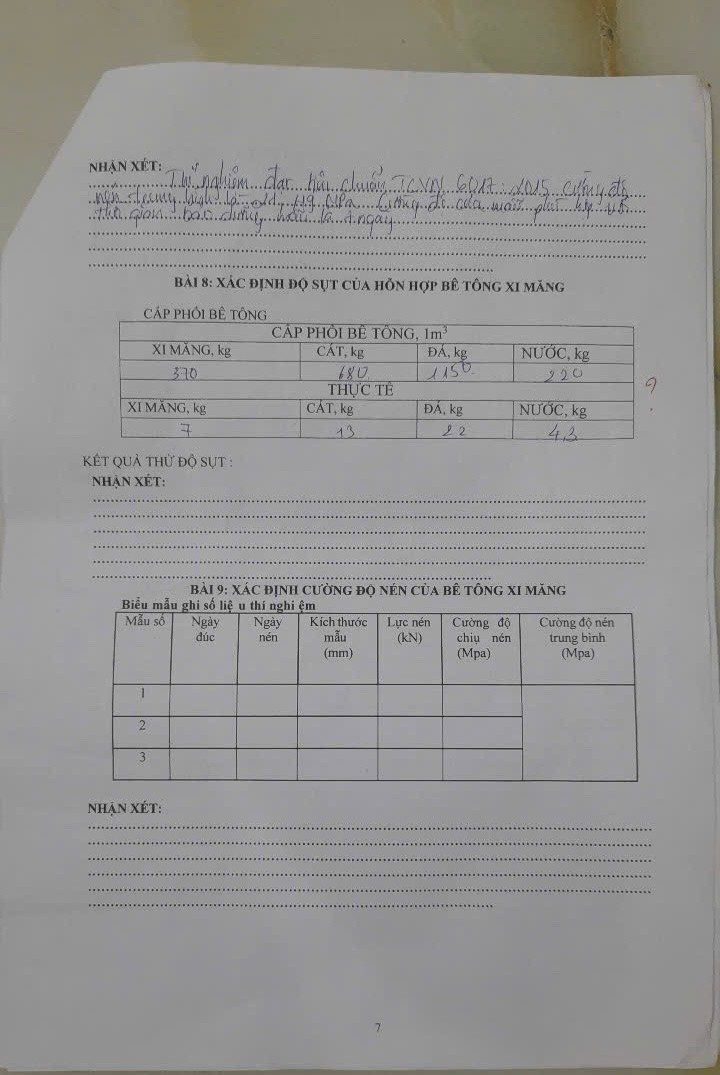 NHẬN XÉT:
Thí nghiệm đạt tiêu chuẩn TCVN 6017:2015 cường độ
nén trung bình là MPa. Cường độ của mẫu phù hợp với
thời gian bảo dưỡng mẫu là 7 ngày
BÀI 8: XÁC ĐỊNH ĐỘ SỤT CỦA HỖN HỢP BÊ TÔNG XI MĂNG
CẤP PHỐI BÊ TÔNG
CẤP PHỐI BÊ TÔNG, 1m³
XI MĂNG, kg CÁT, kg ĐÁ, kg NƯỚC, kg
370 680 1150 220
THỰC TẾ
?
XI MĂNG, kg CÁT, kg ĐÁ, kg NƯỚC, kg
7 13 22 4,3
KẾT QUẢ THỬ ĐỘ SỤT :
NHẬN XÉT:
BÀI 9: XÁC ĐỊNH CƯỜNG ĐỘ NÉN CỦA BÊ TÔNG XI MĂNG
Biểu mẫu ghi số liệ u thí nghi ệm
Mẫu số Ngày đúc Ngày nén Kích thước mẫu (mm) Lực nén (kN) Cường độ chịu nén (Mpa) Cường độ nén trung bình (Mpa)
1
2
3
NHẬN XÉT:
7